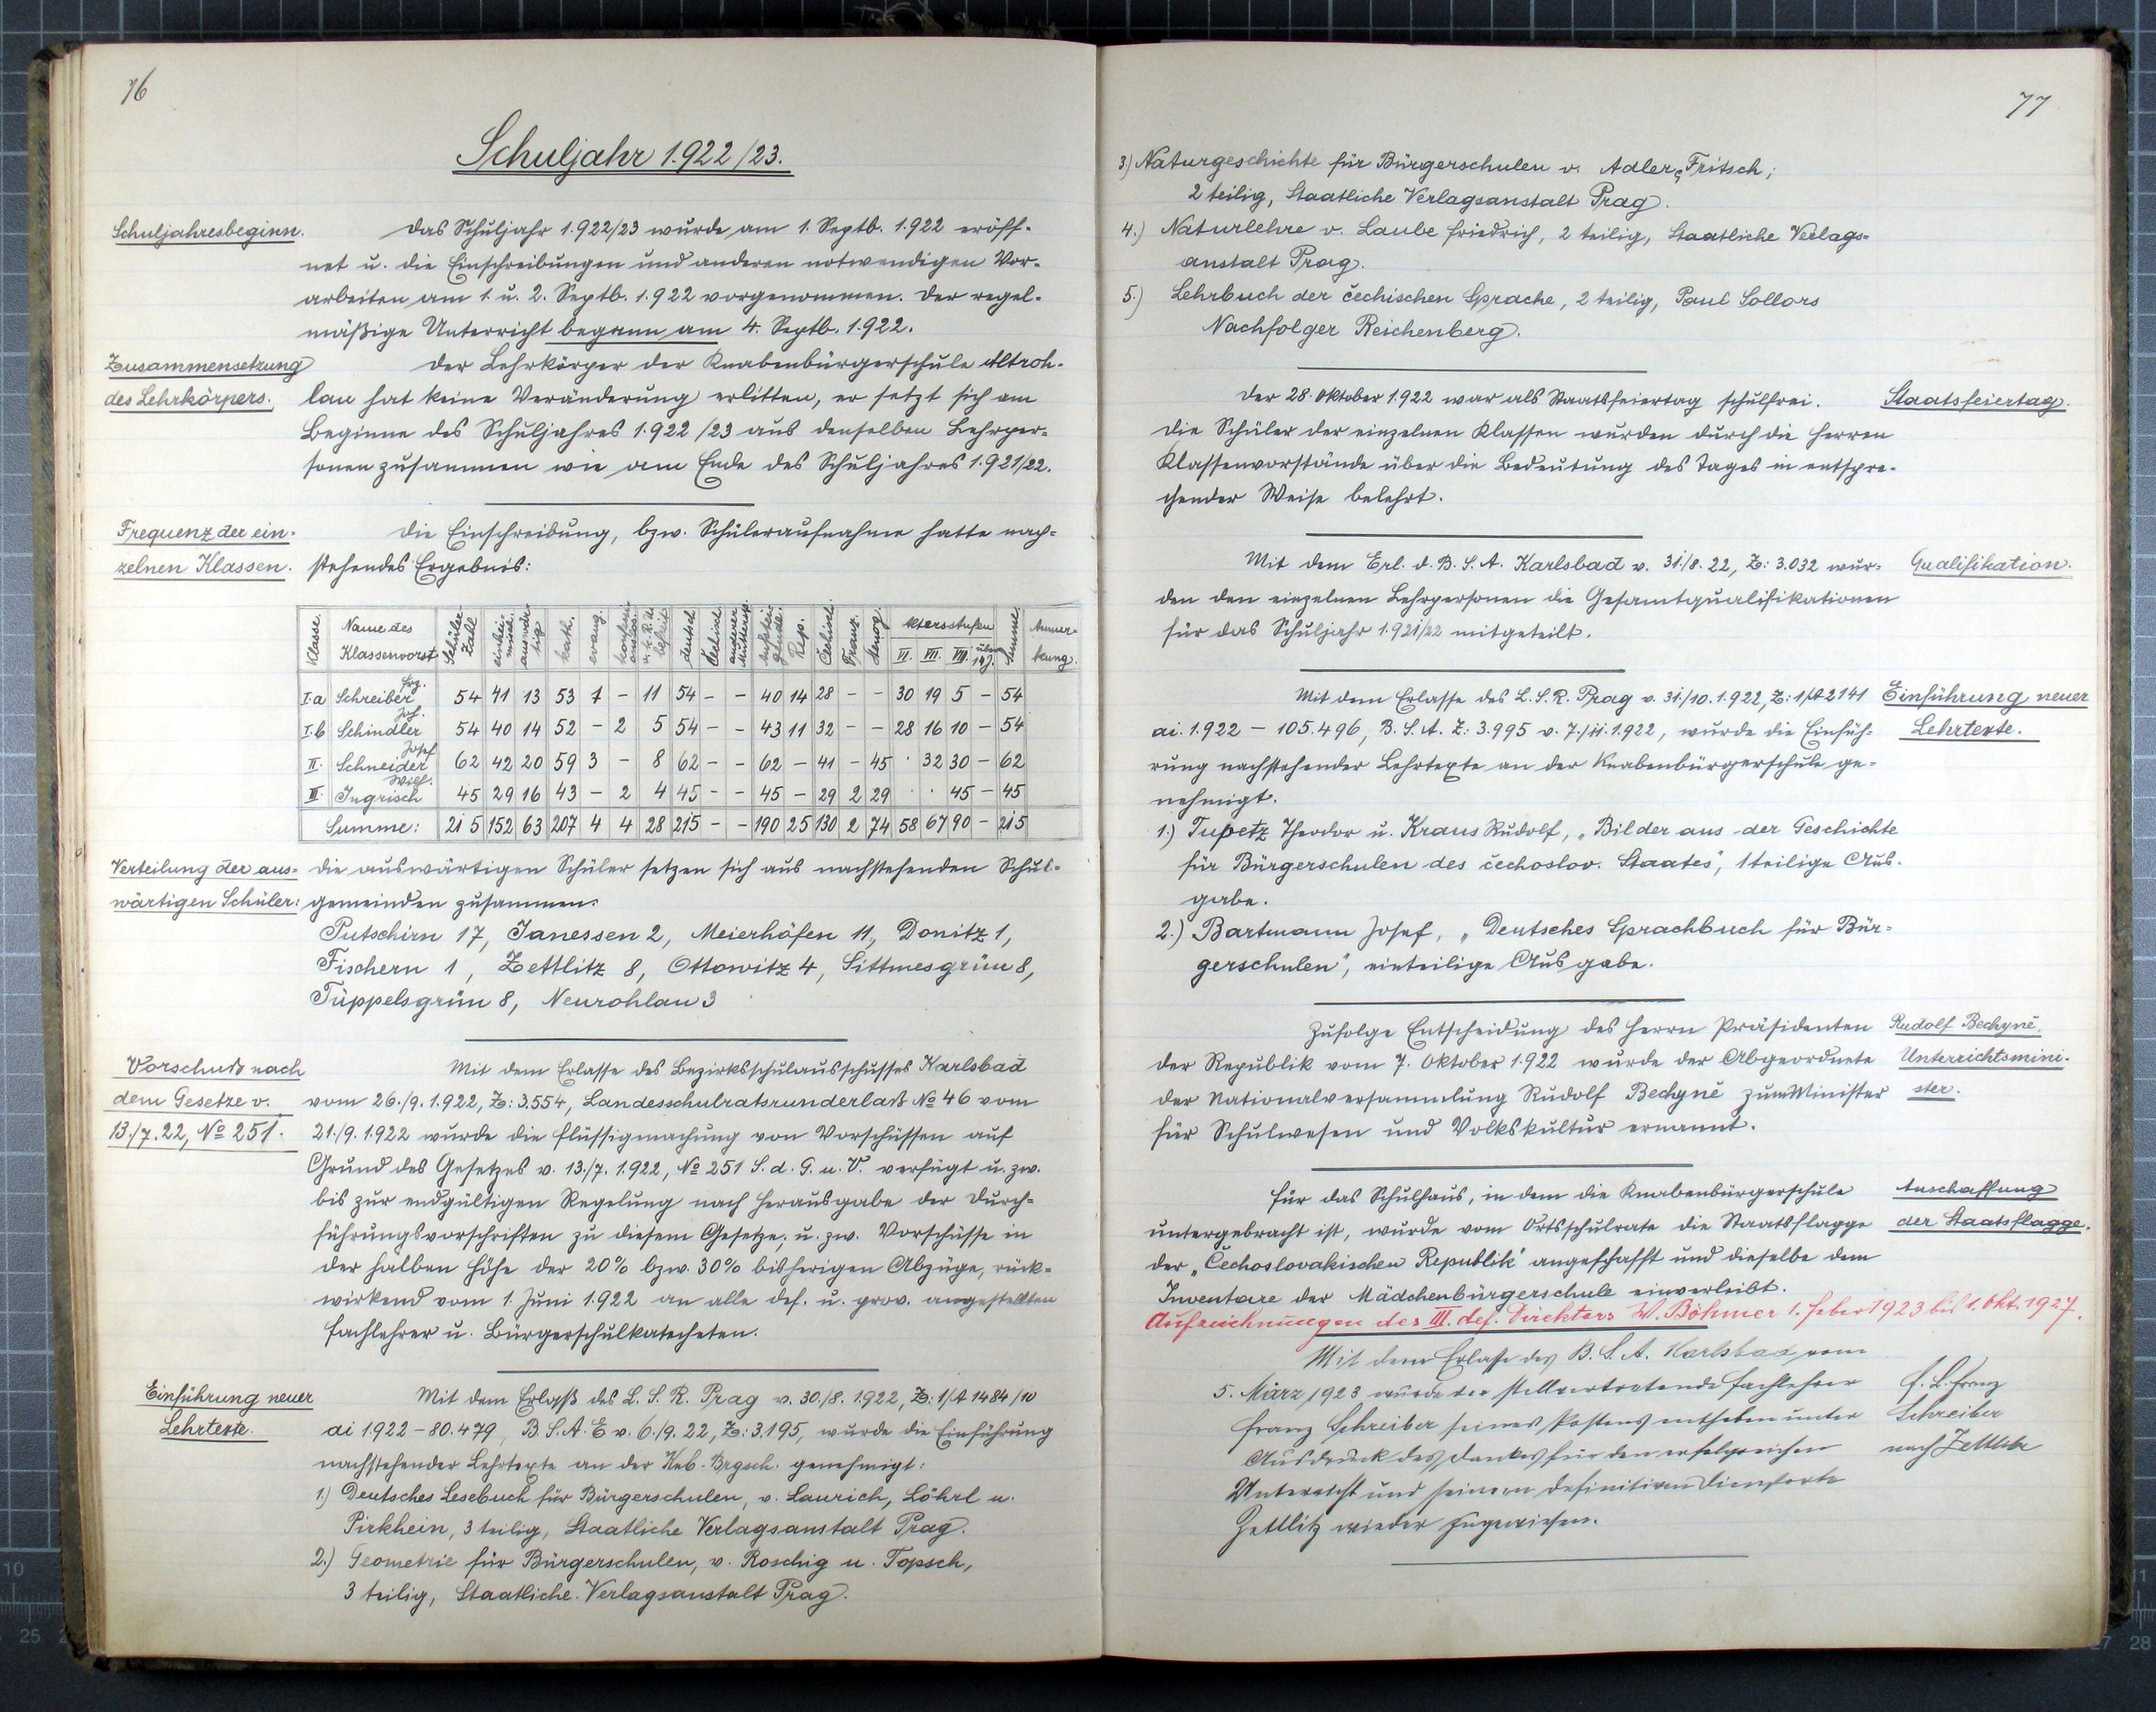 76
Schuljahr 1.922/23.
Schuljahresbeginn.
Das Schuljahr 1.922/23 wurde am 1. Septb. 1.922 eröff-
net u. die Einschreibungen und anderen notwendigen Vor-
arbeiten am 1. u. 2. Septb. 1.922 vorgenommen. Der regel-
mäßige Unterricht begann am 4. Septb. 1.922.
Zusammensetzung
des Lehrkörpers.
Der Lehrkörper der Knabenbürgerschule Altroh-
lau hat keine Veränderung erlitten, er setzt sich am
Beginne des Schuljahres 1.922/23 aus denselben Lehrper-
sonen zusammen wie am Ende des Schuljahres 1.921/22.
Frequenz der ein-
zelnen Klassen.
Die Einschreibung, bzw. Schüleraufnahme hatte nach-
stehendes Ergebnis:
Klasse. Name des Klassenvorst. Schüler-Zall einhei-misch. auswär-tig kath. evang. deutsch Čechisch Rep. Čechisch Franz. Stenog. Altersstufen VI. VII. VIII. über 14 J. Summe Anmer-kung.
I.a Schreiber Frz. 54 41 13 53 1 - 11 54 - - 40 14 28 - - 30 19 5 - 54
I.b Schindler Jos. 54 40 14 52 - 2 5 54 - - 43 11 32 - - 28 16 10 - 54
II. Schneider Josef 62 42 20 59 3 - 8 62 - - 62 - 41 - 45 . 32 30 - 62
III. Ingrisch Wilh. 45 29 16 43 - 2 4 45 - - 45 - 29 2 29 . . 45 - 45
Summe: 215 152 63 207 4 4 28 215 - - 190 25 130 2 74 58 67 90 - 215
Verteilung der aus-
wärtigen Schüler:
Die auswärtigen Schüler setzen sich aus nachstehenden Schul-
gemeinden zusammen:
Putschirn 17, Janessen 2, Meierhöfen 11, Donitz 1,
Fischern 1, Zettlitz 8, Ottowitz 4, Sittmesgrün 8,
Tüppelsgrün 8, Neurohlau 3
Vorschuß nach
dem Gesetze v.
13./7.22, No 251.
Mit dem Erlasse des Bezirksschulausschusses Karlsbad
vom 26./9. 1.922, Z: 3.554, Landesschulratsrunderlaß No 46 vom
21./9. 1.922 wurde die Flüssigmachung von Vorschüssen auf
Grund des Gesetzes v. 13./7. 1.922, No 251 S. d. G. u. V. verfügt u. zw.
bis zur endgültigen Regelung nach Herausgabe der Durch-
führungsvorschriften zu diesem Gesetze, u. zw. Vorschüsse in
der halben Höhe der 20% bzw. 30% bisherigen Abzüge, rück-
wirkend vom 1. Juni 1.922 an alle def. u. prov. angestellten
Fachlehrer u. Bürgerschulkatecheten.
Einführung neuer
Lehrtexte.
Mit dem Erlaß des L. S. R. Prag v. 30./8. 1.922, Z: 1/A 1484/10
ai 1.922 - 80.479, B. S. A. E v. 6./9. 22, Z: 3.195, wurde die Einführung
nachstehender Lehrtexte an der Knb.-Brgsch. genehmigt:
1.) Deutsches Lesebuch für Bürgerschulen, v. Laurich, Löhrl u.
Pirkhein, 3 teilig, Staatliche Verlagsanstalt Prag.
2.) Geometrie für Bürgerschulen, v. Roschig u. Topsch,
3 teilig, Staatliche Verlagsanstalt Prag.
77
3.) Naturgeschichte für Bürgerschulen v. Adler, Fritsch;
2 teilig, Staatliche Verlagsanstalt Prag.
4.) Naturlehre v. Laube Friedrich, 2 teilig, Staatliche Verlags-
anstalt Prag.
5.) Lehrbuch der čechischen Sprache, 2 teilig, Paul Sollors
Nachfolger Reichenberg.
Der 28. Oktober 1.922 war als Staatsfeiertag schulfrei.
Staatsfeiertag.
Die Schüler der einzelnen Klassen wurden durch die Herren
Klassenvorstände über die Bedeutung des Tages in entspre-
chender Weise belehrt.
Mit dem Erl. d. B. S. A. Karlsbad v. 31./8. 22, Z: 3.032 wur-
Qualifikation.
den den einzelnen Lehrpersonen die Gesamtqualifikationen
für das Schuljahr 1.921/22 mitgeteilt.
Mit dem Erlasse des L. S. R. Prag v. 31./10. 1.922, Z: 1/A 2141
Einführung neuer
Lehrtexte.
ai. 1.922 - 105.496, B. S. A. Z: 3.995 v. 7./11. 1.922, wurde die Einfüh-
rung nachstehender Lehrtexte an der Knabenbürgerschule ge-
nehmigt.
1.) Tupetz Theodor u. Kraus Rudolf, „Bilder aus der Geschichte
für Bürgerschulen des čechoslov. Staates", 1 teilige Aus-
gabe.
2.) Bartmann Josef, „Deutsches Sprachbuch für Bür-
gerschulen", einteilige Ausgabe.
Zufolge Entscheidung des Herrn Präsidenten
Rudolf Bechyně
Unterrichtsmini-
ster.
der Republik vom 7. Oktober 1.922 wurde der Abgeordnete
der Nationalversammlung Rudolf Bechyně zum Minister
für Schulwesen und Volkskultur ernannt.
Für das Schulhaus, in dem die Knabenbürgerschule
Anschaffung
der Staatsflagge.
untergebracht ist, wurde vom Ortsschulrate die Staatsflagge
der „Čechoslovakischen Republik" angeschafft und dieselbe dem
Inventare der Mädchenbürgerschule einverleibt.
Aufzeichnungen des III. def. Direktors W. Böhmer 1. Feber 1923 bis 1. Okt. 1927.
Mit dem Erlasse des B. S. A. Karlsbad vom
5. März 1923 wurde der stellvertretende Fachlehrer
Franz Schreiber seines Postens enthoben unter
Ausdruck des Dankes für den erfolgreichen
Unterricht und seinem definitiven Dienstorte
Zettlitz wieder zugewiesen.
F. L. Franz
Schreiber
nach Zettlitz